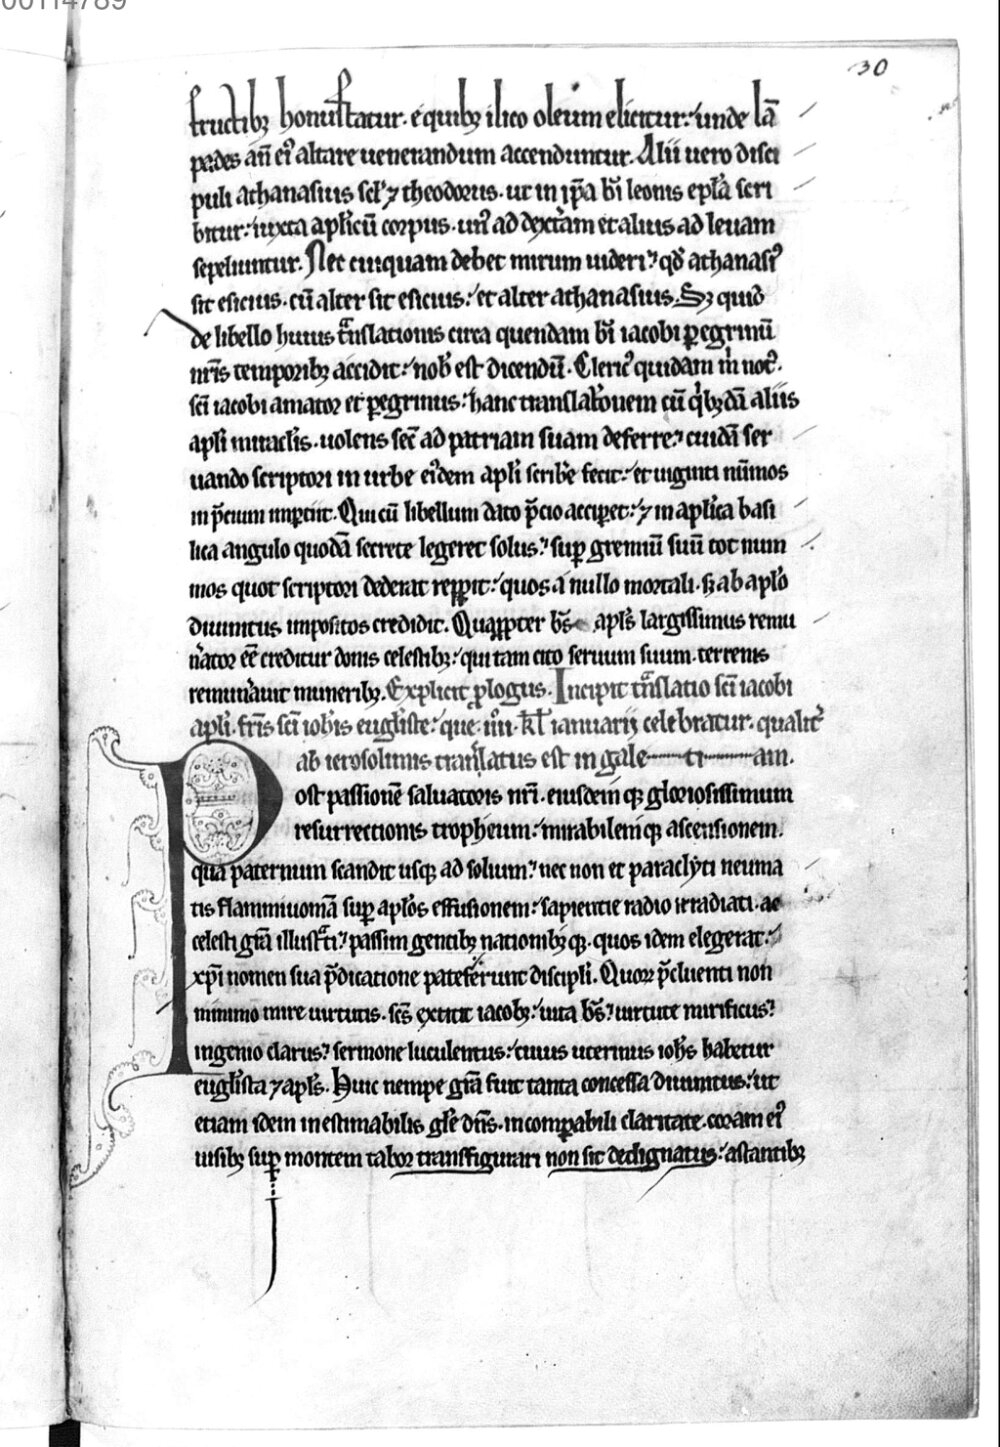 00114789
30
fructibꝫ honuſtatur· e quibꝫ ilico oleum elicitur:ʹ unde lā
pades an̄ eiꝰ altare uenerandum accenduntur. Alii uero diſci
puli athanaſius ſcl' ⁊ theodorus· ut in ip̄a bi̅ leonis epl̅a ſcri
bitur:ʹ iuxta aplicū corpus· unꝰ ad dextram et alius ad leuam
ſepeliuntur. Nec cuiquam debet mirum uideri? qđ athanaſiꝰ
ſit eſicius· cū alter ſit eſicius:ʹ et alter athanaſius. Sꝫ quid
de libello huius tᷓnſlationis circa quendam bi̅ iacobi ꝑegrinū
nr̄is temporibꝫ accidit:ʹ nob̅ eſt dicendū. Clericꝰ quidam m̍ notꝰ·
ſci̅ iacobi amator et ꝑegrinus:ʹ hanc tranſlat̍onem cū qͥbꝫdā aliis
apli̅ miraclis· uolens ſec̄ ad patriam ſuam deferre? cuidā fer
uando ſcriptori in urbe eiꝰdem apli̅ ſcribe̍ fecit:ʹ et uiginti nūmos
in p̄cium impertiit. Qui cū libellum dato p̄cio acciꝑet:ʹ ⁊ in aplica baſi
lica angulo quodā ſecrete legeret ſolus? ſuꝑ gremiū ſuū tot num
mos quot ſcriptori dederat reꝑꝑit:ʹ quos a nullo mortali· ſꝫ ab apl̅o
diuinitus impoſitos credidit. Quapꝓpter bs̅ apl̅s largiſſimus remu
n̍ator ee̅ creditur donis celeſtibꝫ:ʹ qui tam cito ſeruum ſuum· terrenis
remun̍auit muneribꝫ. Explicit ꝓlogus. Incipit tᷓnſlatio ſci̅ iacobi
apli̅· fr̄is ſci̅ ioh̅is eugl̅iſte:ʹ que· iii̅· kl̅ ianuarij celebratur· qualitꝰ
ab ieroſolimis tranſlatus eſt in gale ti am.
Poſt paſſionē ſaluatoris nr̄i· eiuſdemqꝫ glorioſiſſimum
reſurrectionis tropheum:ʹ mirabilemqꝫ aſcenſionem·
qua paternum ſcandit uſqꝫ ad ſolium? nec non et paraclyti neuma
tis flammiuomā ſuꝑ apl̅os effuſionem:ʹ ſapientie radio irradiati· ac
celeſti gr̄a illuſtᷓti? paſſim gentibꝫ nationibꝫqꝫ· quos idem elegerat:ʹ
xp̄i nomen ſua p̄dicatione patefeꝝunt diſcipli̅. Quoꝝ p̄cluenti non
minimo mire uirtutis· ſcs̅ extitit iacobꝰ:ʹ uita bs̅? uirtute mirificus?
ingenio clarus? ſermone luculentus:ʹ cuius uterinus ioh̅s habetur
eugl̅iſta ⁊ apl̅s. Huic nempe gr̄a fuit tanta conceſſa diuinitus:ʹ ut
etiam idem ineſtimabilis gl̅e dn̅s· incomꝑabili claritate· coram eiꝰ
uiſibꝫ ſuꝑ montem tabor tranſfigurari non ſit dedignatus:ʹ aſtantibꝫ